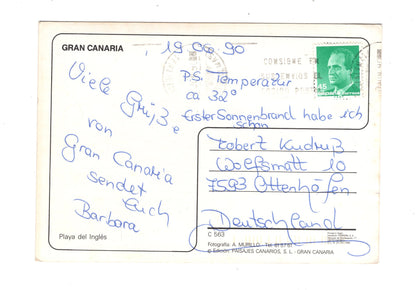 GRAN CANARIA
19.06.90
CONSIGNE EN
P.S. Temperatur
ca 32°
Erster Sonnenbrand habe ich
schon
Viele Grüße
von
Gran Canaria
sendet
Euch
Barbara
Robert Kudruß
Wolfsmatt 10
7593 Ottenhöfen
Deutschland
Playa del Inglés
C 563
Fotografía A. MURILLO - Tel.
© Edición PAISAJES CANARIOS, S. L. - GRAN CANARIA